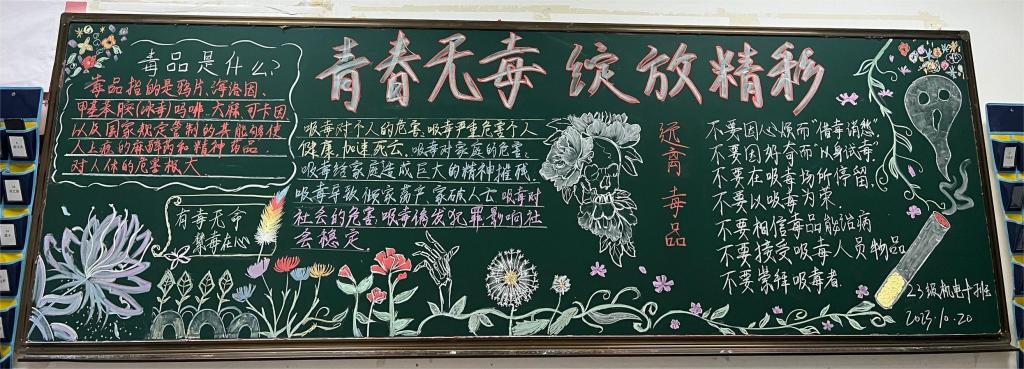 青春无毒 绽放精彩
毒品是什么?
毒品指的是鸦片、海洛因、
甲基苯胺(冰毒)吗啡、大麻、可卡因
以及国家规定管制的其能够使
人上瘾的麻醉药和精神药品.
对人体的危害极大.
有毒无命
禁毒在心
吸毒对个人的危害,吸毒严重危害个人
健康,加速死亡.吸毒对家庭的危害.
吸毒给家庭造成巨大的精神摧残,
吸毒导致倾家荡产 家破人亡 吸毒对
社会的危害,吸毒诱发犯罪影响社
会稳定.
远离毒品
不要因心烦而"借毒消愁"
不要因好奇而"以身试毒".
不要在吸毒场所停留.
不要以吸毒为荣.
不要相信毒品能治病
不要接受吸毒人员物品
不要崇拜吸毒者.
23级机电十班
2023.10.20